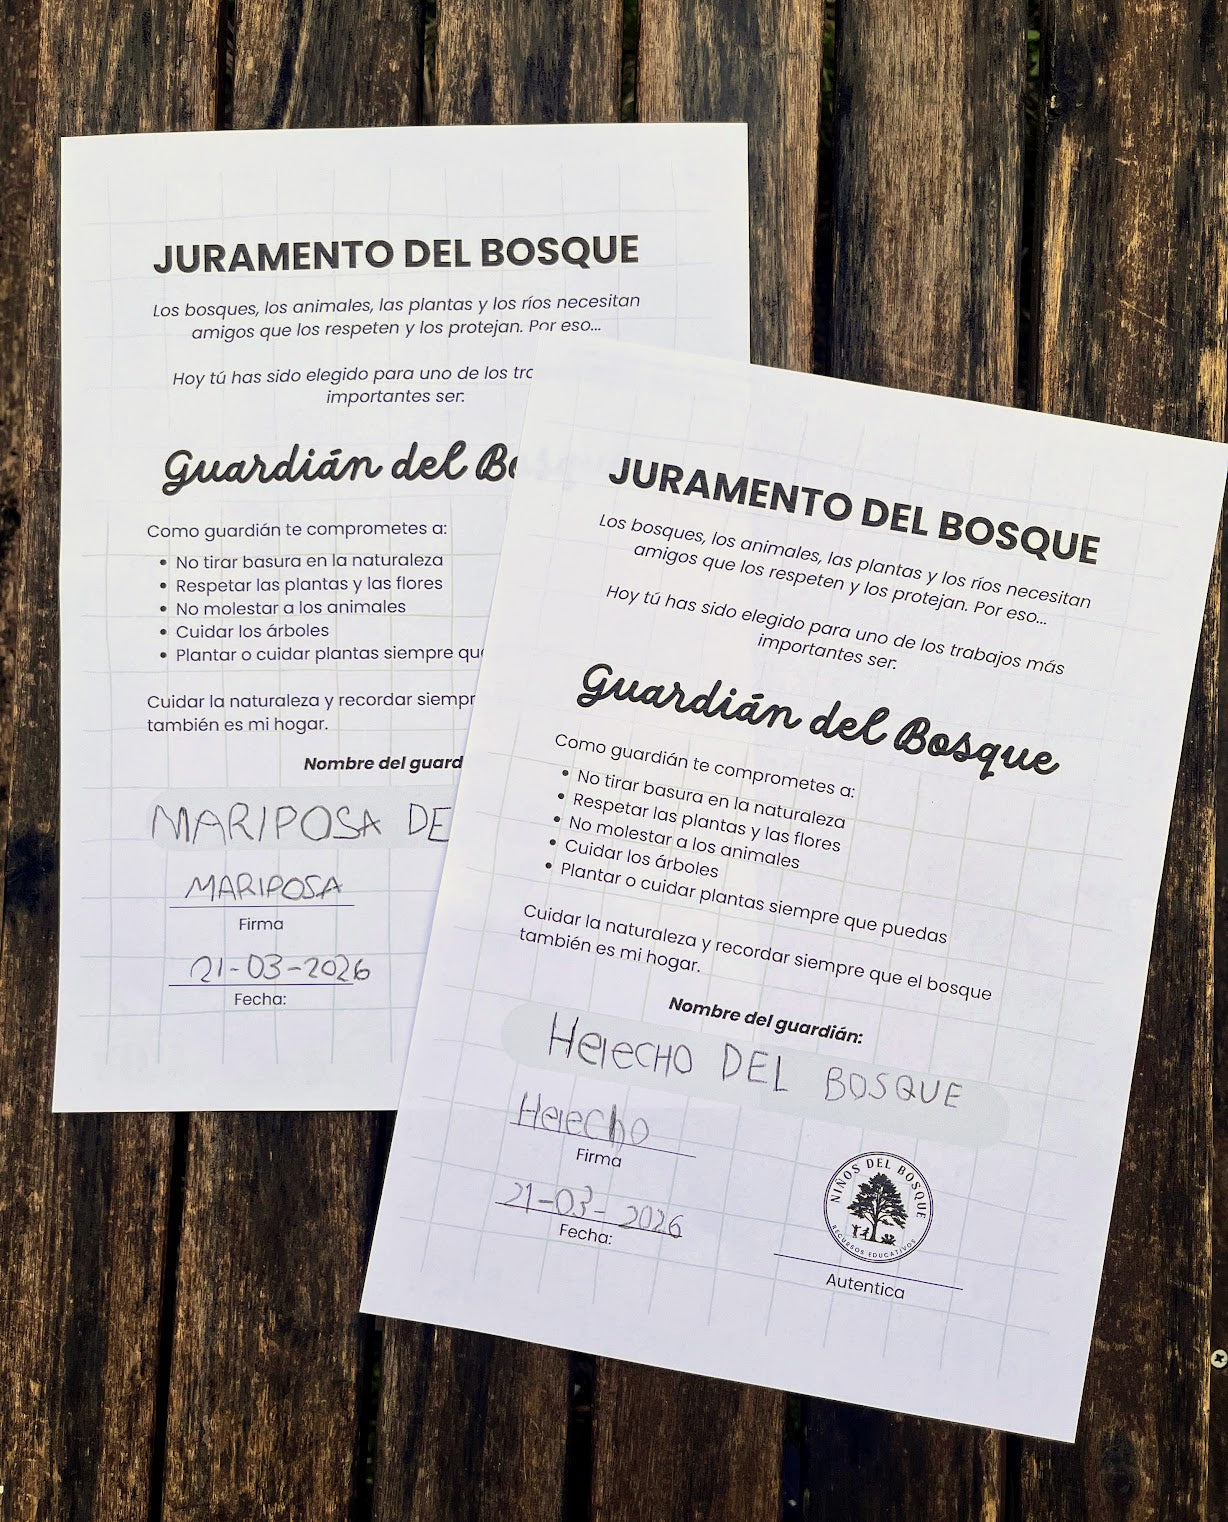 JURAMENTO DEL BOSQUE
Los bosques, los animales, las plantas y los ríos necesitan
amigos que los respeten y los protejan. Por eso...
Hoy tú has sido elegido para uno de los
importantes ser:
Guardián del
Como guardián te comprometes a:
• No tirar basura en la naturaleza
• Respetar las plantas y las flores
• No molestar a los animales
• Cuidar los árboles
• Plantar o cuidar plantas siempre
Cuidar la naturaleza y recordar
también es mi hogar.
Nombre del
MARIPOSA DE
MARIPOSA
Firma
21-03-2026
Fecha:
JURAMENTO DEL BOSQUE
Los bosques, los animales, las plantas y los ríos necesitan
amigos que los respeten y los protejan. Por eso...
Hoy tú has sido elegido para uno de los trabajos más
importantes ser:
Guardián del Bosque
Como guardián te comprometes a:
• No tirar basura en la naturaleza
• Respetar las plantas y las flores
• No molestar a los animales
• Cuidar los árboles
• Plantar o cuidar plantas siempre que puedas
Cuidar la naturaleza y recordar siempre que el bosque
también es mi hogar.
Nombre del guardián:
HelecHO DEL BOSQUE
Helecho
Firma
21-03-2026
Fecha:
NIÑOS DEL BOSQUE
RECURSOS EDUCATIVOS
Autentica